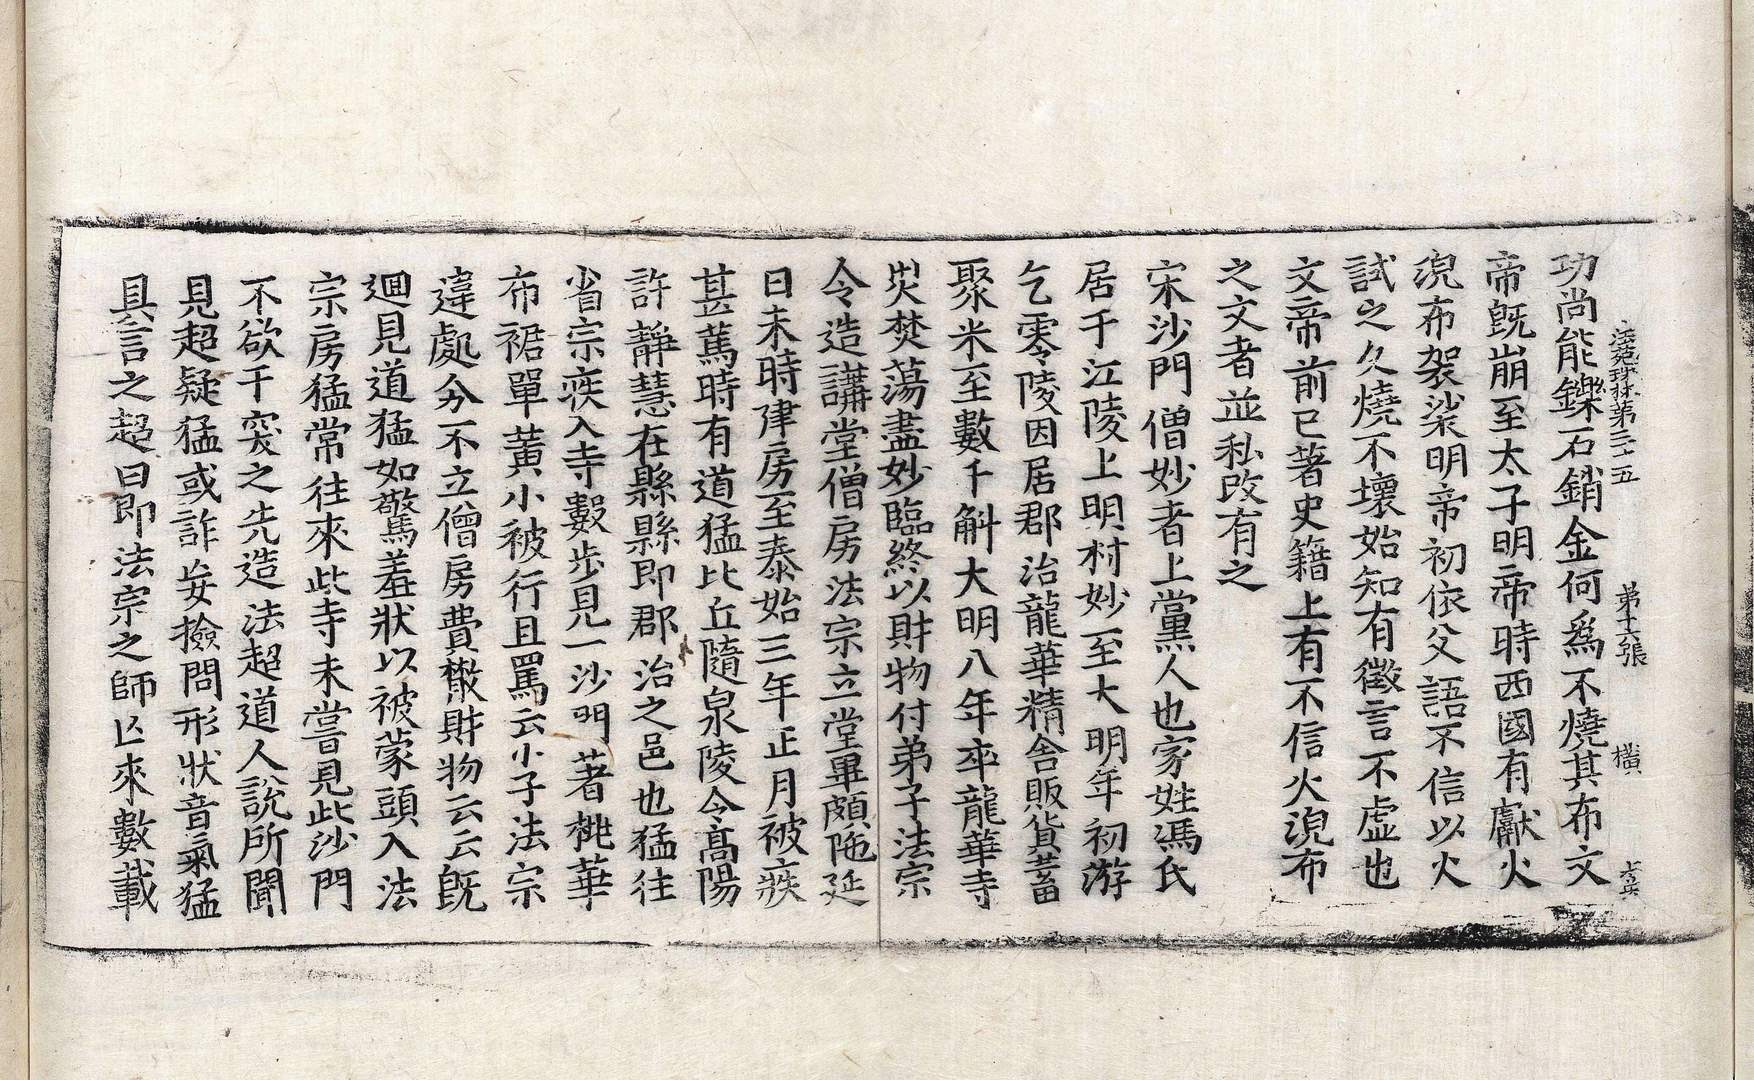 法苑珠林第三十五 第十六張 橫
功尚能鑠石銷金何爲不燒其布文
帝旣崩至太子明帝時西國有獻火
浣布袈裟明帝初依父語不信以火
試之久燒不壞始知有徵言不虛也
文帝前已著史籍上有不信火浣布
之文者並私改有之
宋沙門僧妙者上黨人也家姓馮氏
居于江陵上明村妙至大明年初游
乞零陵因居郡治龍華精舍販貨蓄
聚米至數千斛大明八年卒龍華寺
災焚蕩盡妙臨終以財物付弟子法宗
令造講堂僧房法宗立堂畢頗陁延
日未時建房至泰始三年正月被疾
甚篤時有道猛比丘隨泉陵令髙陽
許靜慧在縣縣即郡治之邑也猛往
省宗疾入寺數步見一沙門著桃華
布裙單黃小被行且罵云小子法宗
違處分不立僧房費散財物云云旣
迴見道猛如驚羞狀以被蒙頭入法
宗房猛常往來此寺未嘗見此沙門
不欲干突之先造法超道人說所聞
見超疑猛或詐妄撿問形狀音氣猛
具言之超曰即法宗之師亾來數載